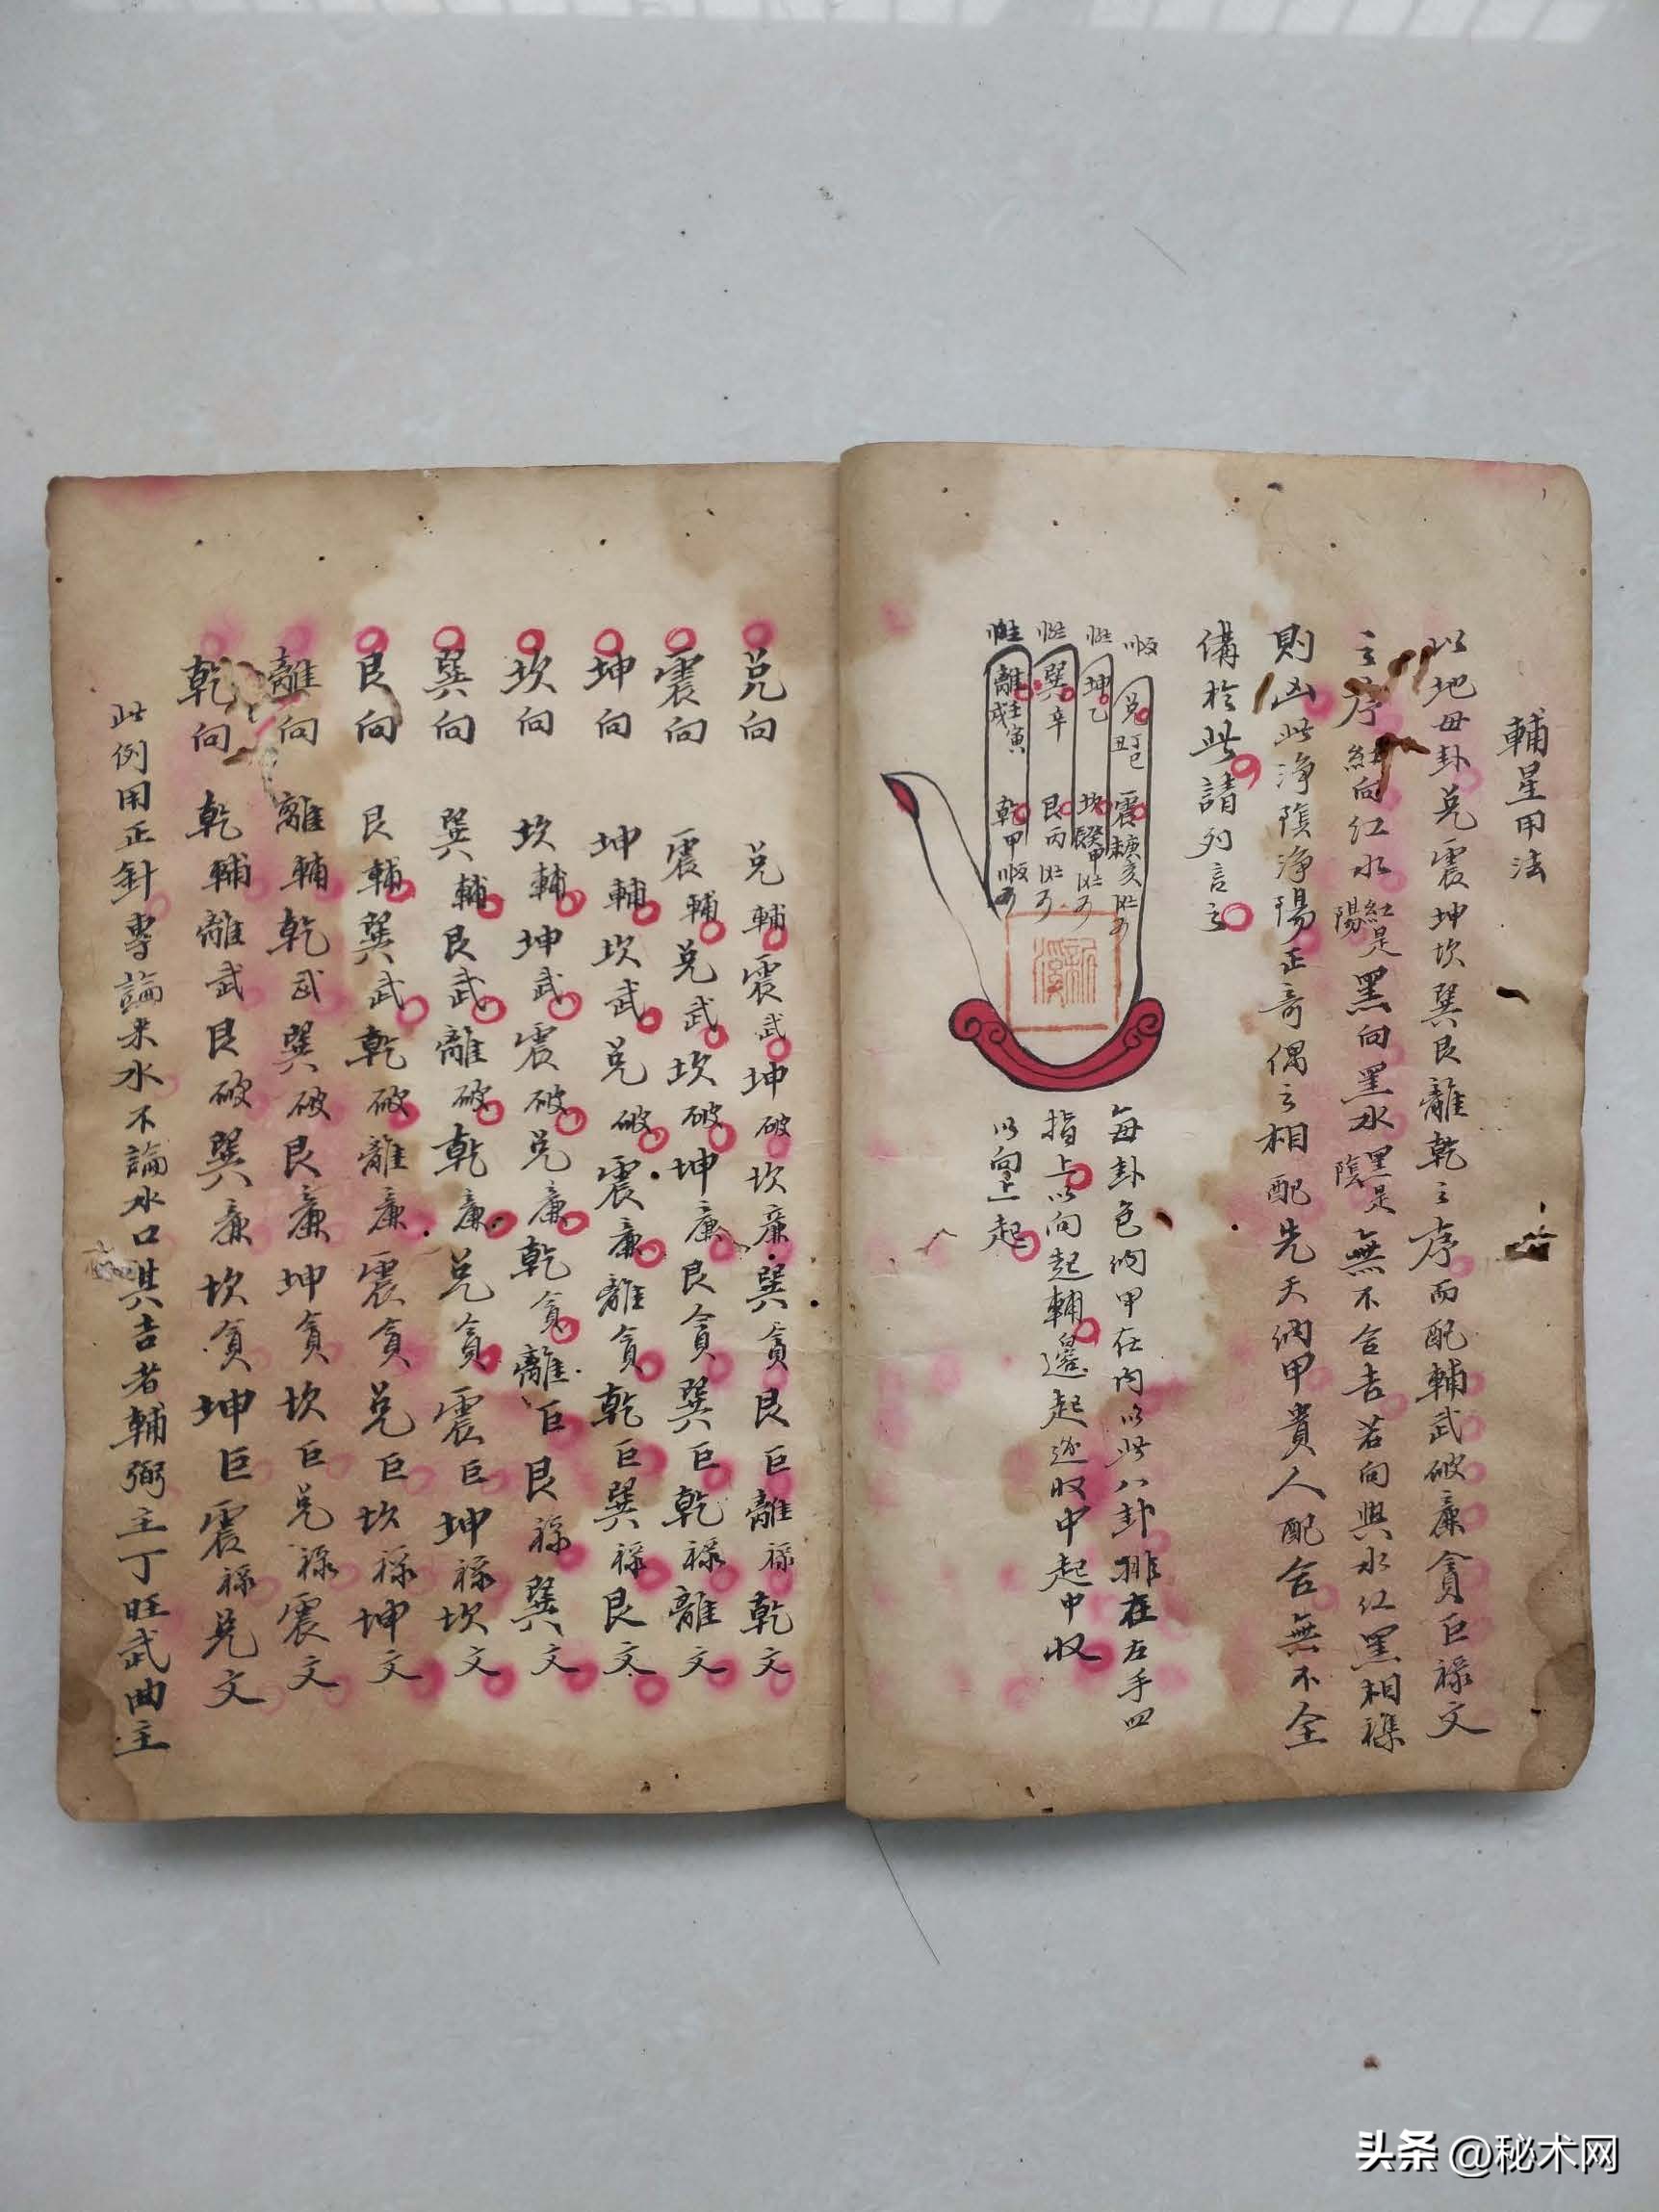 輔星用法
以地母卦兑震坤坎巽艮離乾之序而配輔武破廉貪巨祿文
之序 紅向紅水 紅是陽 黑向黑水 黑是陰 無不合吉若向與水紅黑相襍
則凶此淨陰淨陽正奇偶之相配先天納甲貴人配合無不全
備於此請列言之
順
兑 丁巳丑
震 庚亥未
坤乙
坎 癸申辰
巽辛
艮丙
離 壬寅戌
乾甲
每卦包納甲在内以此八卦排在左手四
指上以向起輔邊起逆收中起中收
以向上起
兑向 兑輔震武坤破坎廉巽貪艮巨離祿乾文
震向 震輔兑武坎破坤廉艮貪巽巨乾祿離文
坤向 坤輔坎武兑破震廉離貪乾巨巽祿艮文
坎向 坎輔坤武震破兑廉乾貪離巨艮祿巽文
巽向 巽輔艮武離破乾廉兑貪震巨坤祿坎文
艮向 艮輔巽武乾破離廉震貪兑巨坎祿坤文
離向 離輔乾武巽破艮廉坤貪坎巨兑祿震文
乾向 乾輔離武艮破巽廉坎貪坤巨震祿兑文
此例用正針專論來水不論水口其吉者輔弼主丁旺武曲主
头条 @秘术网